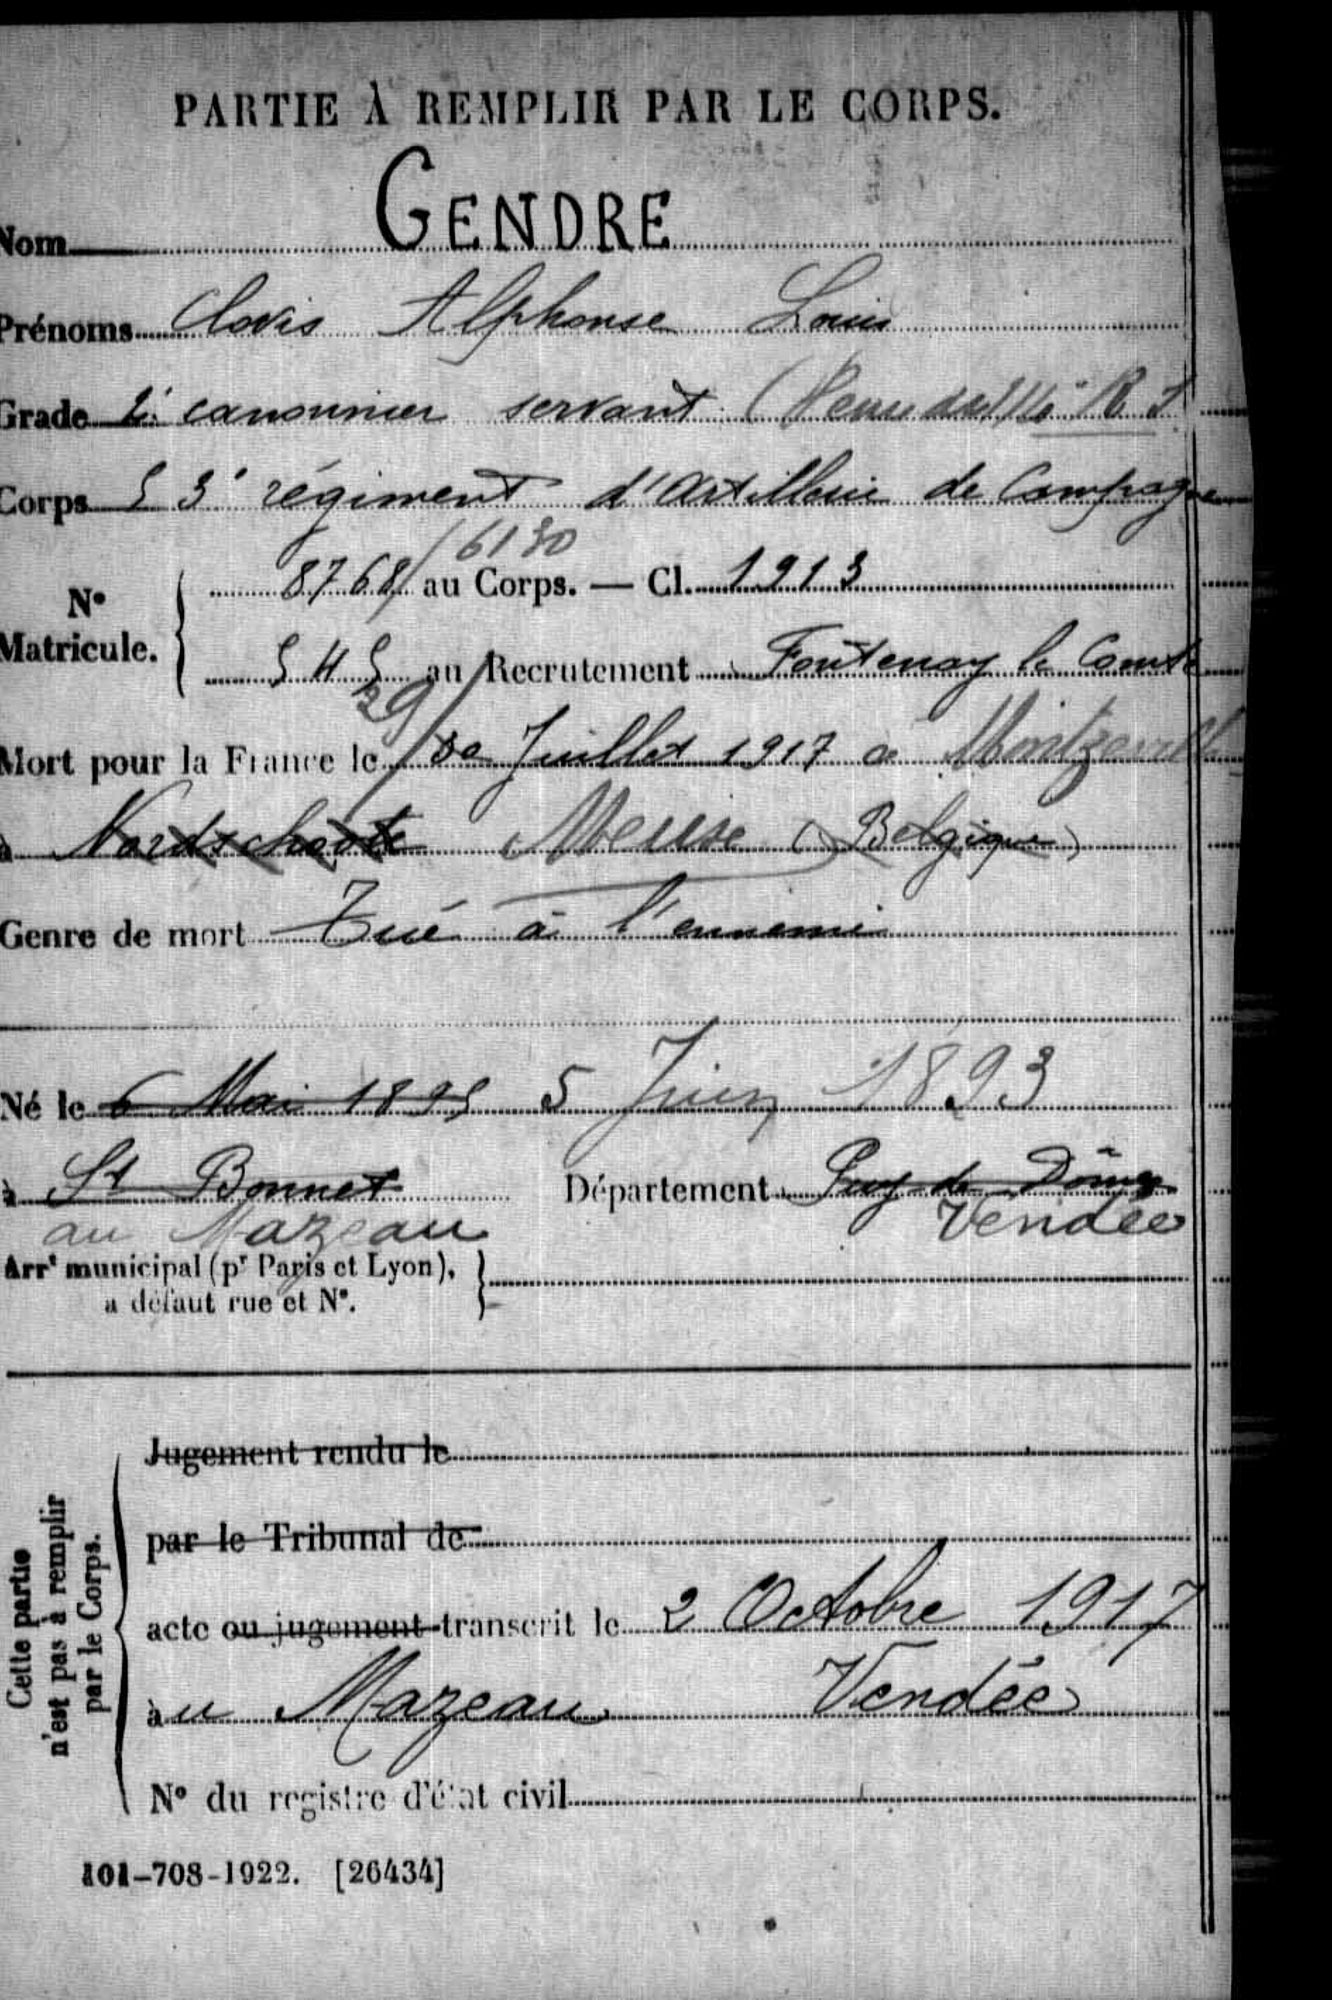 PARTIE À REMPLIR PAR LE CORPS.
Nom GENDRE
Prénoms Clovis Alphonse Louis
Grade 2e canonnier servant (
Corps 53e régiment d'Artillerie de Campagne
6130
8768 / au Corps. — Cl. 1913
N°
Matricule.
545 au Recrutement Fontenay le Comte
29
Mort pour la France le 30 Juillet 1917 à Montzeville
à Nordschoote Meuse (Belgique)
Genre de mort Tué à l'ennemi
Né le 6 Mai 1895 5 Juin 1893
à St Bonnet Département Puy de Dôme
au Mazeau Vendée
Arrt municipal (pr Paris et Lyon),
a défaut rue et N°.
Cette partie
n'est pas à remplir
par le Corps.
Jugement rendu le
par le Tribunal de
acte ou jugement transcrit le 2 Octobre 1917
au Mazeau Vendée
N° du registre d'état civil
101-708-1922. [26434]